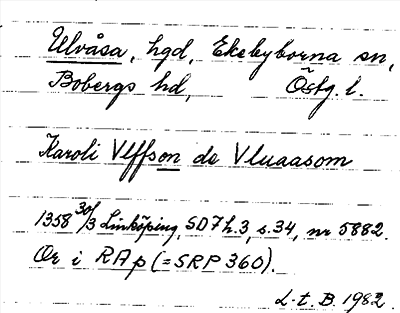 Ulvåsa, hgd, Ekebyborna sn,
Bobergs hd, Östg. l.
Karoli Vlffson de Vluaasom
1358 30/3 Linköping, SD7h.3, s.34, nr 5882.
Or i RAp (=SRP 360).
L.t.B. 1982.